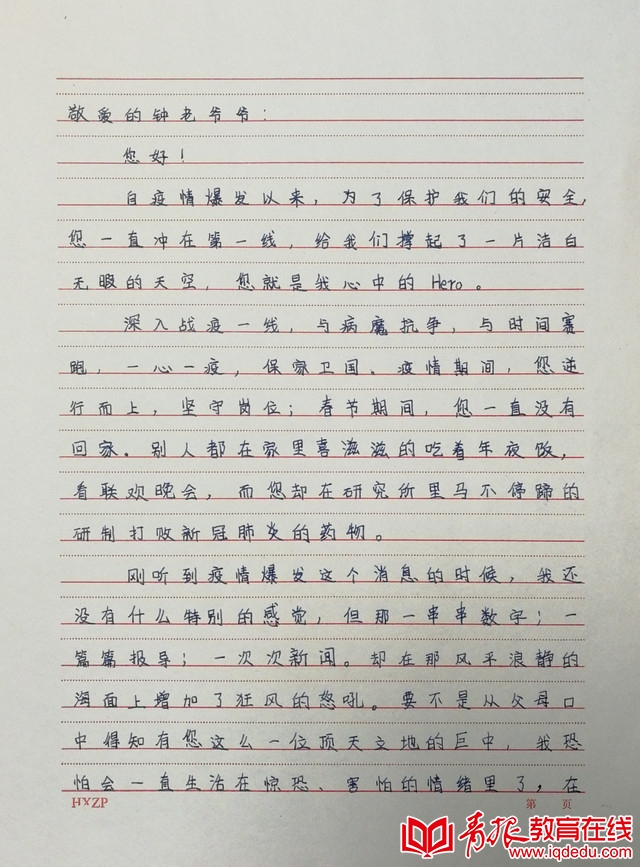 敬爱的钟老爷爷：
您好！
自疫情爆发以来，为了保护我们的安全，
您一直冲在第一线，给我们撑起了一片洁白
无暇的天空，您就是我心中的Hero。
深入战疫一线，与病魔抗争，与时间赛
跑，一心一疫，保家卫国。疫情期间，您逆
行而上，坚守岗位；春节期间，您一直没有
回家。别人都在家里喜滋滋的吃着年夜饭，
看联欢晚会，而您却在研究所里马不停蹄的
研制打败新冠肺炎的药物。
刚听到疫情爆发这个消息的时候，我还
没有什么特别的感觉，但那一串串数字；一
篇篇报导；一次次新闻。却在那风平浪静的
海面上增加了狂风的怒吼。要不是从父母口
中得知有您这么一位顶天立地的巨中，我恐
怕会一直生活在惊恐、害怕的情绪里了，在
HXZP
第 页
青报教育在线
www.iqdedu.com